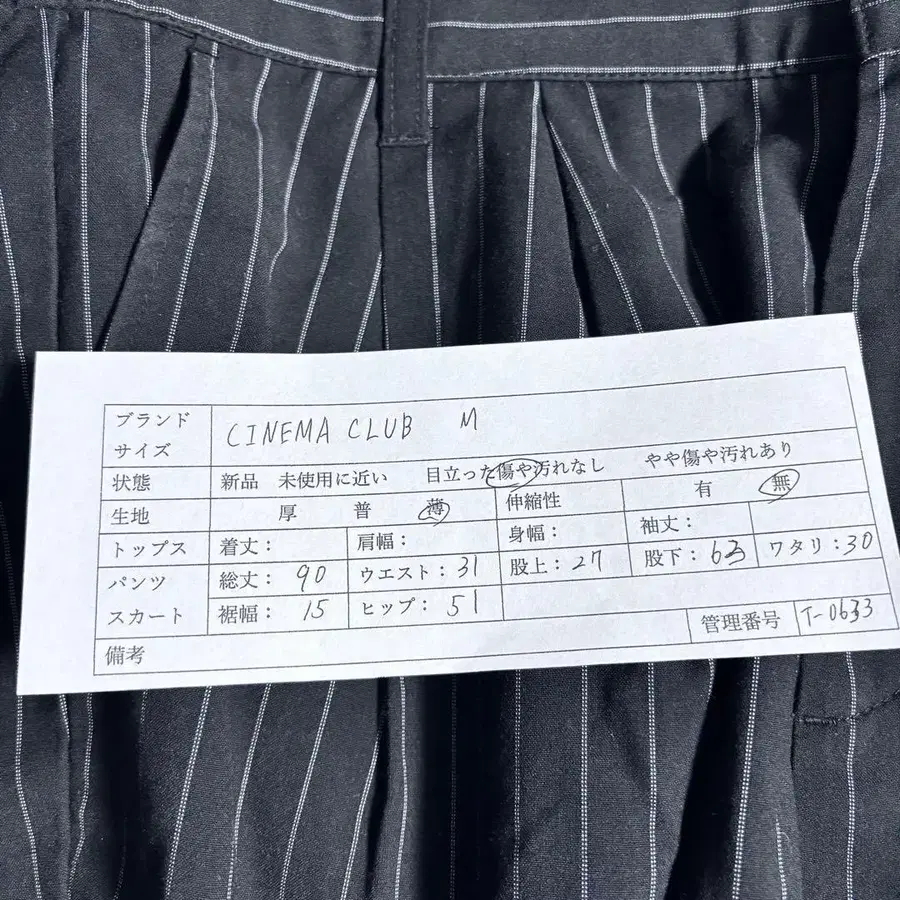 ブランド
サイズ
CINEMA CLUB M
状態 新品 未使用に近い 目立った傷や汚れなし やや傷や汚れあり
生地 厚 普 薄 伸縮性 有 無
トップス 着丈： 肩幅： 身幅： 袖丈：
パンツ 総丈：90 ウエスト：31 股上：27 股下：63 ワタリ：30
スカート 裾幅：15 ヒップ：51
備考 管理番号 T-0633